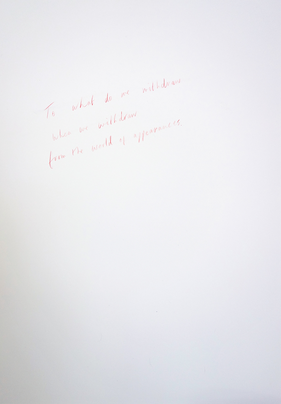 To what do we withdraw
when we withdraw
from the world of appearance